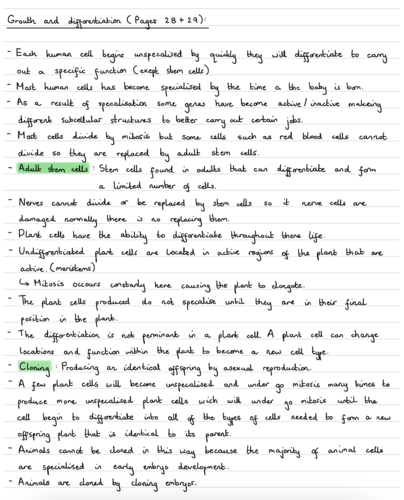 Growth and differentiation (Pages 28 + 29):
- Each human cell begins unspecalised by quickly they will differentiate to carry
out a specific function (exept stem cells)
- Most human cells has become specialised by the time a the baby is born.
- As a result of specalisation some genes have become active/inactive makeing
different subcellular structures to better carry out certain jobs.
- Most cells divide by mitosis but some cells such as red blood cells cannot
divide so they are replaced by adult stem cells.
- Adult stem cells : Stem cells found in adults that can differentiate and form
a limited number of cells.
- Nerves cannot divide or be replaced by stem cells so it nerve cells are
damaged normally there is no replacing them.
- Plant cells have the ability to differentiate throughout there life.
- Undifferentiated plant cells are located in active regions of the plant that are
active. (maristems)
↳ Mitosis occours constanly here causing the plant to elongate.
- The plant cells produced do not specalise until they are in their final
position in the plant.
- The differentiation is not perminant in a plant cell. A plant cell can change
locations and function within the plant to become a new cell type.
- Cloning : Producing an identical offspring by asexual reproduction.
- A few plant cells will become unspecialised and under go mitosis many times to
produce more unspecialised plant cells wich will under go mitosis until the
cell begin to differentiate into all of the types of cells needed to form a new
offspring plant that is identical to its parent.
- Animals cannot be cloned in this way because the majority of animal cells
are specialised in early embryo development.
- Animals are cloned by cloning embryos.